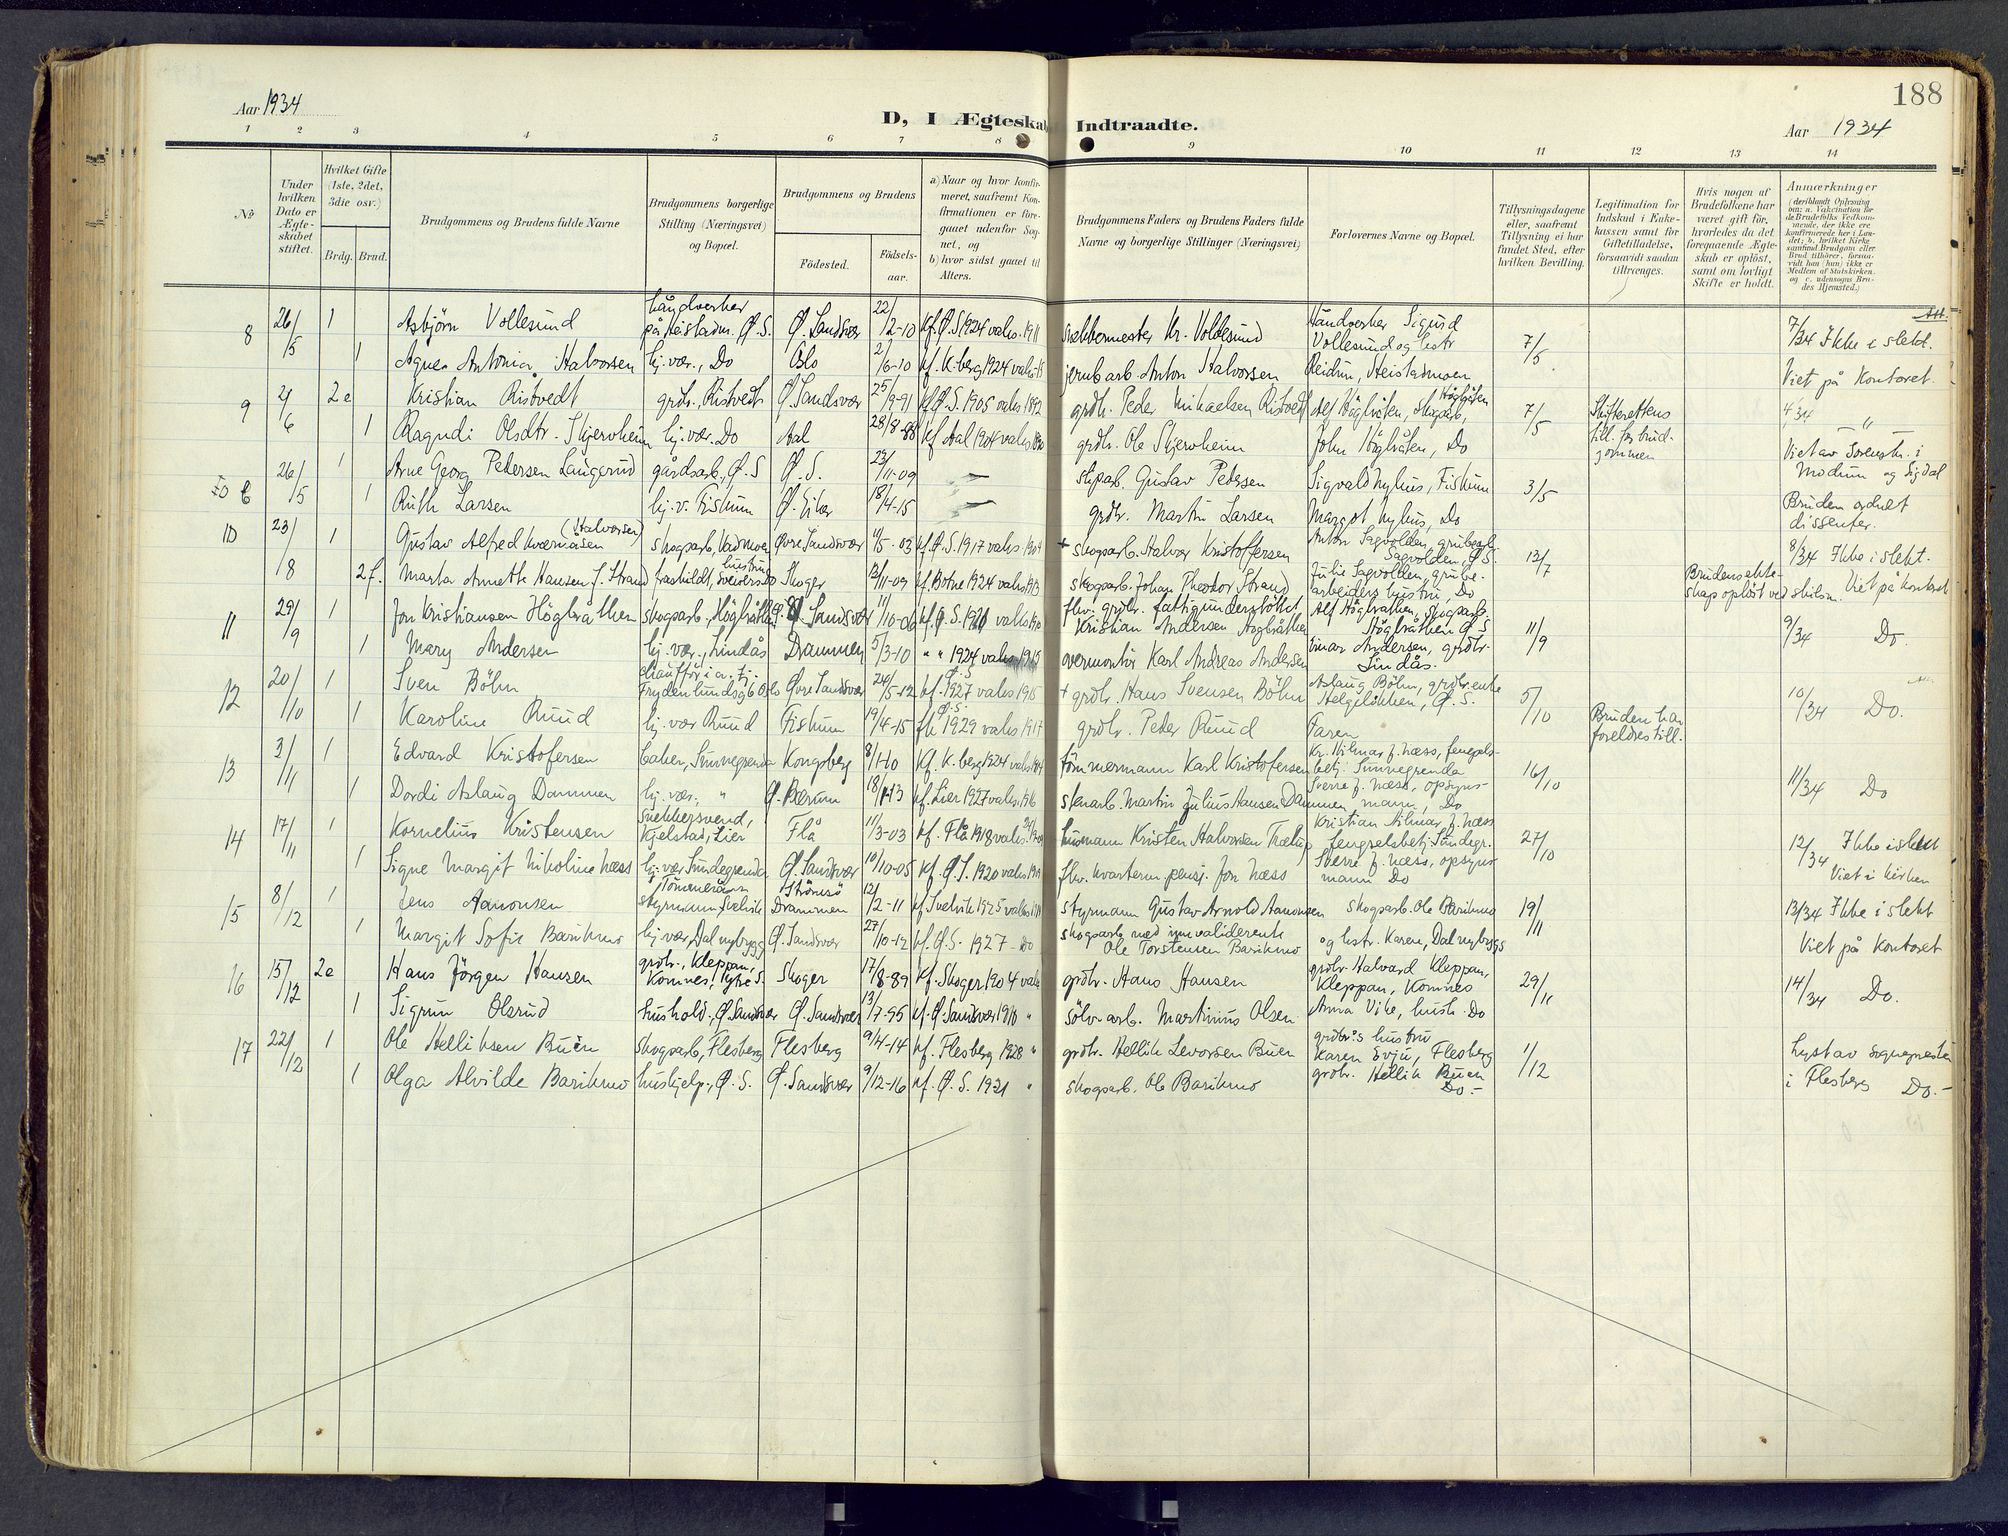 188
Aar 1934
D, I Ægteskab Indtraadte.
Aar 1934
1 2 3 4 5 6 7 8 9 10 11 12 13 14
No
Under hvilken Dato er Ægteskabet stiftet.
Hvilket Gifte (1ste, 2det, 3die osv.)
Brdg. Brud.
Brudgommens og Brudens fulde Navne
Brudgommens borgerlige Stilling (Næringsvei) og Bopæl.
Brudgommens og Brudens
Fødested.
Fødsels-aar.
a) Naar og hvor konfirmeret, saafremt Konfirmationen er foregaaet udenfor Sognet, og
b) hvor sidst gaaet til Alters.
Brudgommens Faders og Brudens Faders fulde Navne og borgerlige Stillinger (Næringsvei)
Forlovernes Navne og Bopæl.
Tillysningsdagene eller, saafremt Tillysning ei har fundet Sted, efter hvilken Bevilling.
Legitimation for Indskud i Enkekassen samt for Giftetilladelse, forsaavidt saadan tiltrænges.
Hvis nogen af Brudefolkene har været gift før, hvorledes da det foregaaende Ægteskab er opløst, samt om lovligt Skifte er holdt.
Anmærkninger
(deriblandt Oplysning om: a. Vakcination for de Brudefolks Vedkommende, der ikke ere konfirmerede her i Landet; b. hvilket Kirkesamfund Brudgom eller Brud tilhører, forsaavidt han (hun) ikke er Medlem af Statskirken, og c. udensogns Brudes Hjemsted.)
8 26/5 1 Asbjörn Vollesund håndverker på Heistadm. Ø. S. Ø. Sandsvær 22/2-10 Kf. Ø. S 1924 vaks. 1911 snekkermester Kr. Voldesund Håndverker Sigurd Vollesund og hstr 7/5 7/34 Ikke i slekt.
1 Agnes Antonia Halvorsen hj. vær., Do Oslo 2/6-10 kf. K.berg 1924 vaks. jernb arb. Anton Halvorsen Reidun, Heistadmoen Viet på Kontoret.
9 2/6 2e Kristian Ristvedt grdbr., Ristvedt Ø. Sandsvær 25/9-91 kf. Ø. S. 1905 vaks 1892 grdbr. Peder Mikaelsen Ristvedt Alf Högbråten, skogsarb, Högbråten 7/5 Skifterettens till. for brudgommen 4/34 "
1 Ragndi Olsdtr. Skjervheim hj. vær. Do Aal 28/8-86 kf Aal 1904 vaks grdbr. Ole Skjervheim John Högbråten, Do Viet av Sorenskr. i Modum og Sigdal
10 b 26/5 1 Arne Georg Petersen Langgrud gårdsarb, Ø. S Ø. S. 23/11-09 — stiparb. Gustav Petersen Sigvald Nyhus, Fiskum 3/5
1 Ruth Larsen hj. v. Fiskum Ø. Eiker 18/4-15 — grdbr. Martin Larsen Margot Nyhus, Do Bruden ordnet dissenter.
10 23/8 1 Gustav Alfred Kværnåsen (Halvorsen) skogsarb, Vadmoen Øvre Sandsvær 10/5-03 kf. Ø. S. 1917 vaks. 1904 + skogsarb. Halvor Kristoffersen Anton Sagvolden, grubearb. Sagvolden, Ø. S. 13/7 8/34 Ikke i slekt.
2 f. Marta Annette Hansen f. Strand fraskildt, hustru Skoger 13/11-09 kf. Botne 1924 vaks 1913 skogsarb. Johan Theodor Strand Julie Sagvolden, grubearbeiders hustru, Do Brudens ekteskap oplöst ved skilsm. Viet på kontoret
11 29/9 1 Jon Kristiansen Högbråthen skogsarb., Högbråthen Ø. Sandsvær 11/10-06 kf. Ø. S. 1920 vaks fhv. grdbr. fattigunderstöttet Kristian Andersen Högbråthen Alf Högbråthen, skogsarb. Högbråthen Ø. S 11/9 9/34 Do.
1 Mary Andersen hj. vær., Lindås Drammen 5/3-10 " " 1924 vaks 1915 overmontör Karl Andreas Andersen Einar Andersen, grdbr. Lindås.
12 20/10 1 Sven Böhn chaufför Frydenlundsgt. 6 Oslo Øvre Sandsvær 24/5-12 kf. Ø. S 1927 vaks 1915 + grdbr. Hans Svensen Böhn Aslaug Böhn, grdbr. enke Helgelökken, Ø. S. 5/10 10/34 Do.
1 Karoline Ruud hj. vær Ruud Fiskum 19/4-15 Ø. S. 1929 vaks 1917 grdbr. Peter Ruud Faren Bruden har foreldres till.
13 3/11 1 Edvard Kristofersen baker, Sunnegrenda Kongsberg 8/1-10 Kf. K.berg 1924 vaks tömmermann Karl Kristofersen Kr. Hilmar f. Næss, fengelsbetj. Sunnegrenda 16/10 11/34 Do
1 Dordi Aslaug Dammen hj. vær., " Ø. Bærum 18/1-13 kf. Lier 1927 vaks 1916 stenarb. Martin Julius Hansen Dammen Sverre f. Næss, opsynsmann, Do
14 17/11 1 Kornelius Kristensen Snekkersvend, Kjelstad, Lier Flå 11/3-03 kf. Flå 1918 vaks. husmann Kristen Halvorsen Kristian Hilmar f. Næss fengselsbetj. Sundegr. 27/10 12/34 Ikke i slekt
1 Signe Margit Nikoline Næss hj. vær Sundegrenda Ø. Sandsvær 10/10-05 kf. Ø. S. 1920 vaks. fhv. kvarterm. pensj. Jon Næss Sverre f. Næss, opsynsmann Do Viet i kirken
15 8/12 1 Jens Aanonsen styrmann, Svelvik Strömsö Drammen 12/2-11 kf. Svelvik 1925 vaks styrmann Gustav Arnold Aanonsen skogsarb. Ole Barikmo 19/11 13/34 Ikke i slekt
1 Margit Sofie Barikmo hj. vær, Dal nybygg Ø. Sandsvær 27/10-12 kf. Ø. S. 1927 - Do skogsarb. nu invaliderent Ole Torstensen Barikmo og hstr. Karen, Dal nybygg Viet på Kontoret
16 15/12 2e Hans Jörgen Hansen grdbr., Kleppan, Komnes, Ytre S. Skoger 17/8-89 kf. Skoger 1904 vaks grdbr. Hans Hansen grdbr. Halvard Kleppan, Kleppan, Komnes 29/11 14/34 Do.
1 Sigrun Olsrud hushold., Ø. Sandsvær Ø. Sandsvær 13/7-95 kf. Ø. Sandsvær 1910 " sölvarb. Martinius Olsen Anna Vike, hush. Do
17 22/12 1 Ole Helliksen Buin skogsarb, Flesberg Flesberg 9/4-14 kf. Flesberg 1928 " grdbr. Hellik Levorsen Buen grdbr.s hustru Karen Evju, Flesberg 1/12 Lyst av sognepresten i Flesberg
1 Olga Alvilde Barikmo hushjelp, Ø. S. Ø. Sandsvær 9/12-16 kf. Ø. S. 1931 " skogsarb. Ole Barikmo grdbr. Hellik Buen Do.- Do.-